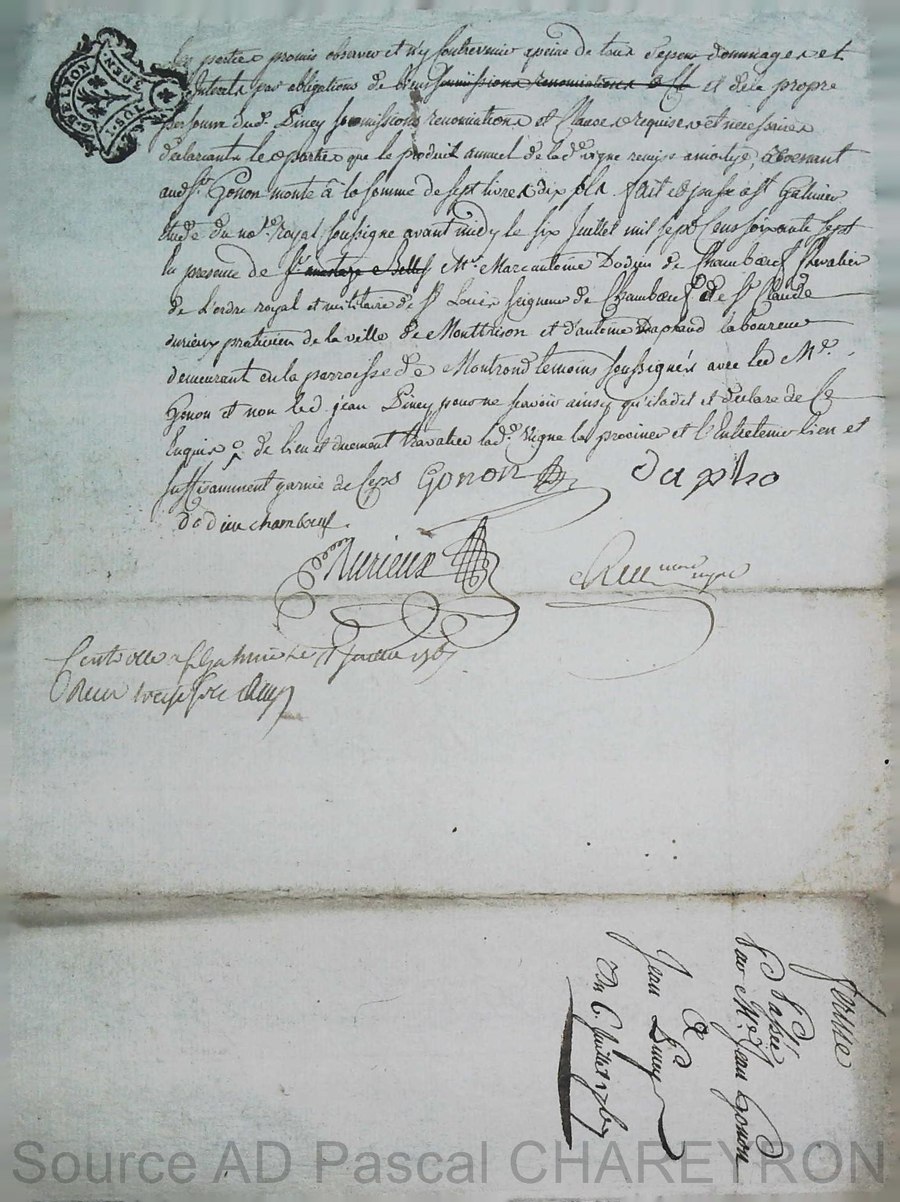 les parties promis observer et n'y contrevenir a peine de tous depens dommages et
Interets par obligations de biens soumissions renonciations & Cl et de la propre
personne dud. Piney soumissions renonciations et Clauses requises et necessaires
declarants les parties que le produit annuel de lad. vigne remise a moitye, revenant
aud. Sr. Gonon monte à la somme de sept livres dix sols fait et passé a St Galmier
étude du nore. Royal soussigné avant midy le six Juillet mil sept Cens soixante sept
En presence de Mre. Marcantoine Dodieu de Chambœuf Chevalier
de L'ordre royal et militaire de St. Louis seigneur de Chambœuf de Sr. Claude
durieux praticien de la ville de Montbrison et d'antoine Daphaud laboureur
demeurant en la parroisse de Montrond temoins soussignés avec led Mre.
Gonon et non led. jean Piney pour ne sçavoir ainsy qu'il a dit et déclaré de Ce
Enquis de bien et duement travailler lad. Vigne les proviner et l'Entretenir bien et
suffisamment garnie de Ceps Gonon dapho
Dodieu chambœuf.
Durieux
Controllé a St Galmier le Juillet 1767
Reçu treize sols
ferme
Passée
par Mre. Jean Gonon
A
Jean Piney
Du 6. Juillet 1767
Source AD Pascal CHAREYRON
LYON